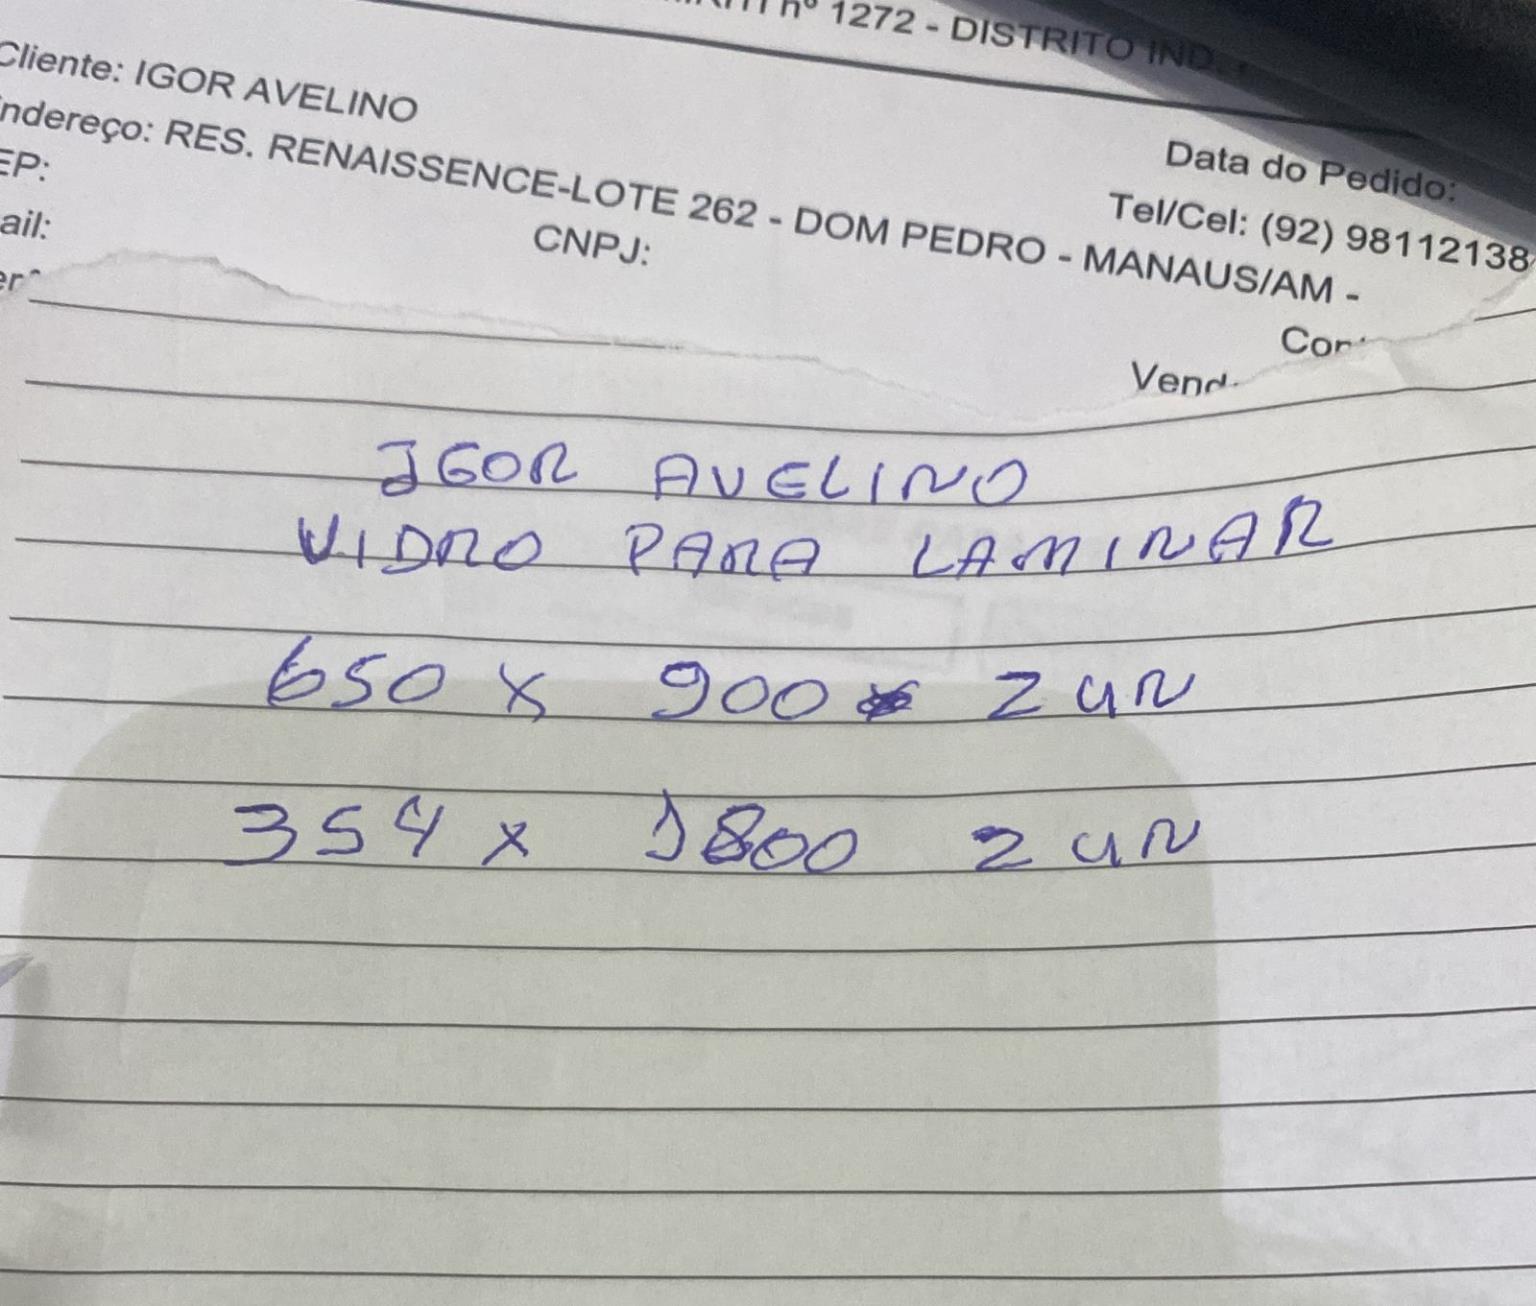 nº 1272 - DISTRITO IND.
Cliente: IGOR AVELINO
Data do Pedido:
ndereço: RES. RENAISSENCE-LOTE 262 - DOM PEDRO - MANAUS/AM -
Tel/Cel: (92) 98112138
EP:
ail:
CNPJ:
IGOR AVELINO
VIDRO PARA LAMINAR
650 x 900 2 UN
354 x 1800 2 UN